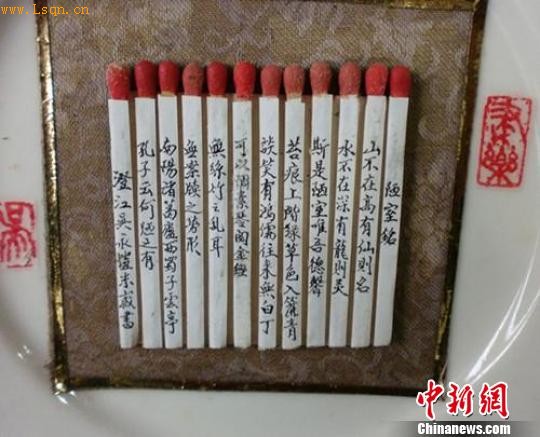 www.Lsqn.cn
陋室銘
山不在高有仙則名
水不在深有龍則灵
斯是陋室唯吾德馨
苔痕上階緑草色入簾青
談笑有鴻儒往来無白丁
可以調素琴阅金經
無絲竹之乱耳
無案牍之劳形
南陽诸葛廬西蜀子雲亭
孔子云何陋之有
澄江吴永書
中新網
www.chinanews.com